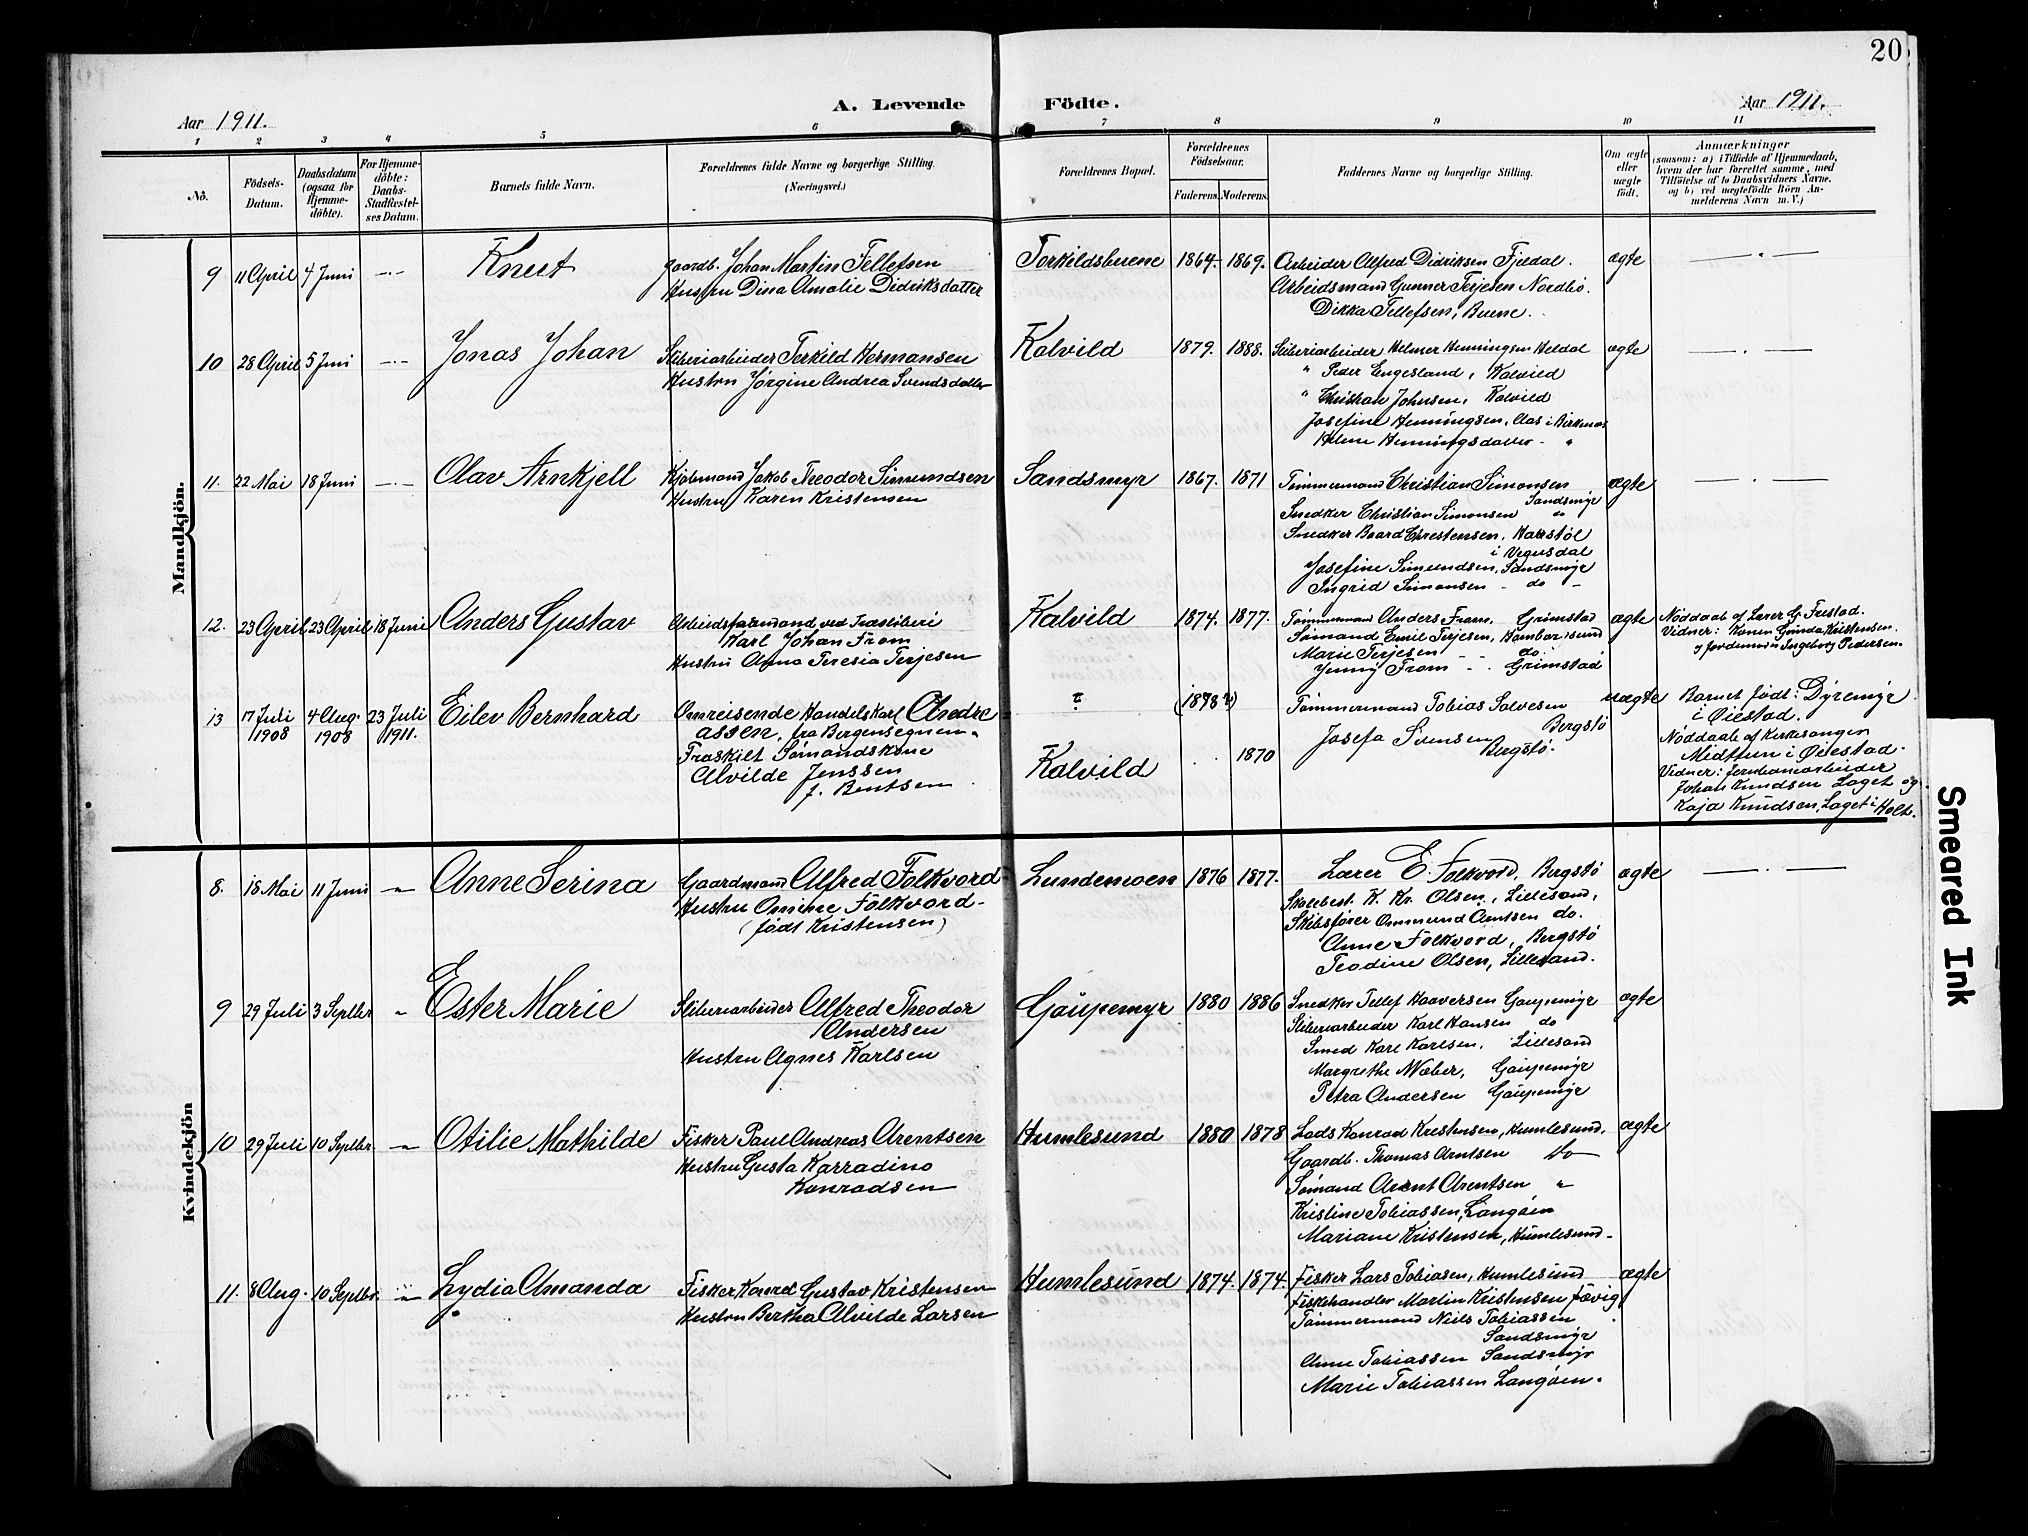 20
A. Levende Födte.
Aar 1911.
Aar 1911.
1 2 3 4 5 6 7 8 9 10 11
No.
Födsels-Datum.
Daabsdatum (ogsaa for Hjemme-döbte).
For Hjemme-döbte: Daabs-Stadfæstel-ses Datum.
Barnets fulde Navn.
Forældrenes fulde Navne og borgerlige Stilling. (Næringsvei.)
Forældrenes Bopæl.
Forældrenes Födselsaar.
Faderens. Moderens.
Faddernes Navne og borgerlige Stilling.
Om ægte eller uægte födt.
Anmærkninger
(saasom: a) i Tilfælde af Hjemmedaab,
hvem der har forrettet samme, med
Tilföielse af to Daabsvidners Navne,
og b) ved uægtefödte Börn An-
melderens Navn m. V.)
Mandkjön.
9 11 April 4 Juni -.- Knut
gaardb. Johan Martin Tellefsen
Hustru Dina Amalie Didriksdatter
Torkildsbuene 1864. 1869.
Arbeider Alfred Didriksen Fjeldal.
Arbeidsmand Gunner Terjesen Nordbö.
Dikka Tellefsen, Buene.
ægte
10 28 April 5 Juni -.- Jonas Johan
Sliberiarbeider Terkild Hermansen
Hustru Jørgine Andrea Svendsdatter
Kalvild 1879. 1888.
Sliberiarbeider Helmer Henningsen Heldal
" Peder Engesland, Kalvild
" Christian Johnsen, Kalvild
Josefine Henningsen, Aas i Birkenes
Helene Henningsdatter - "
ægte
11. 22 Mai 18 Juni -.- Olav Arnkjell
Kjøbmand Jakob Theodor Simundsen
Hustru Karen Kristensen
Sandsmyr 1867. 1871
Tømmermand Christian Simonsen
Sandsmyr
Snedker Christian Simonsen "
Snedker Baard Christensen, Hakstøl
i Vegusdal
Josefine Simundsen, Sandsmyr
Ingrid Simonsen - do -
ægte
12. 23 April 23 April 18 Juni Anders Gustav
Arbeidsformand ved Træsliberi
Karl Johan From
Hustru Anna Teresia Terjesen
Kalvild 1874. 1877.
Tømmermand Anders From, Grimstad
Sømand Emil Terjesen, Hambor sund
Marie Terjesen - - do
Jenny From - - Grimstad
ægte
Nöddaab af Lærer G. Frestad.
Vidner: Konen Gunda Kristensen
og Jordemoder Ingeborg Pedersen
13 17 Juli 1908 4 Aug. 1908 23 Juli 1911. Eilev Bernhard
Omreisende Handelskarl Andre
assen, fra Bergensegnen.
Fraskilt Sømandskone
Alvilde Jenssen
f. Bentsen
? (1878?)
Kalvild 1870
Tømmermand Tobias Salvesen
Bergstø
Josefa Svensen
Bergstø.
uægte
Barnet født: Dyremyr
i Øiestad.
Nöddaab af Kirkesanger
Midttun i Øiestad.
Vidner: Jernbanearbeider
Johan Knudsen Laget og
Kaja Knudsen, Laget i Holt.
Kvindekjön
8. 18 Mai 11 Juni " Anne Serina
Gaardmand Alfred Folkvord
Hustru Omine Folkvord
(født Kristensen)
Lundemoen 1876 1877.
Lærer E. Folkvord, Bergstø
Skolebest. K. Kr. Olsen, Lillesand,
Skibsfører Ommund Arntsen do.
Anne Folkvord, Bergstø
Teodine Olsen, Lillesand.
ægte
9 29 Juli 3 Septbr " Ester Marie
Sliberiarbeider Alfred Theodor
Andersen
Hustru Agnes Karlsen
Gaupemyr 1880 1886
Snedker Tellef Haaversen Gaupemyr
Sliberiarbeider Karl Hansen do
Smed Karl Karlsen, Lillesand
Margrethe Næber, Gaupemyr
Petra Andersen Gaupemyr
ægte
10 29 Juli 10 Septbr. " Otilie Mathilde
Fisker Paul Andreas Arentsen
Hustru Gusta Karradino
Konradsen
Humlesund 1880 1878
Lods Konrad Kristensen, Humlesund.
Gaardb. Thomas Arntsen do
Sømand Arent Arentsen "
Kristine Tobiassen, Langøen
Mariane Kristensen, Humlesund.
ægte
11. 8 Aug. 10 Septbr. " Lydia Amanda
Fisker Konrad Gustav Kristensen
Hustru Bertha Alvilde Larsen
Humlesund 1874. 1874.
Fisker Lars Tobiasen, Humlesund
Fiskehandler Martin Kristensen Jøvig
Tømmermand Niels Tobiassen
Sandsmyr
Anne Tobiassen Sandsmyr
Marie Tobiassen Langøen.
ægte
Smeared Ink